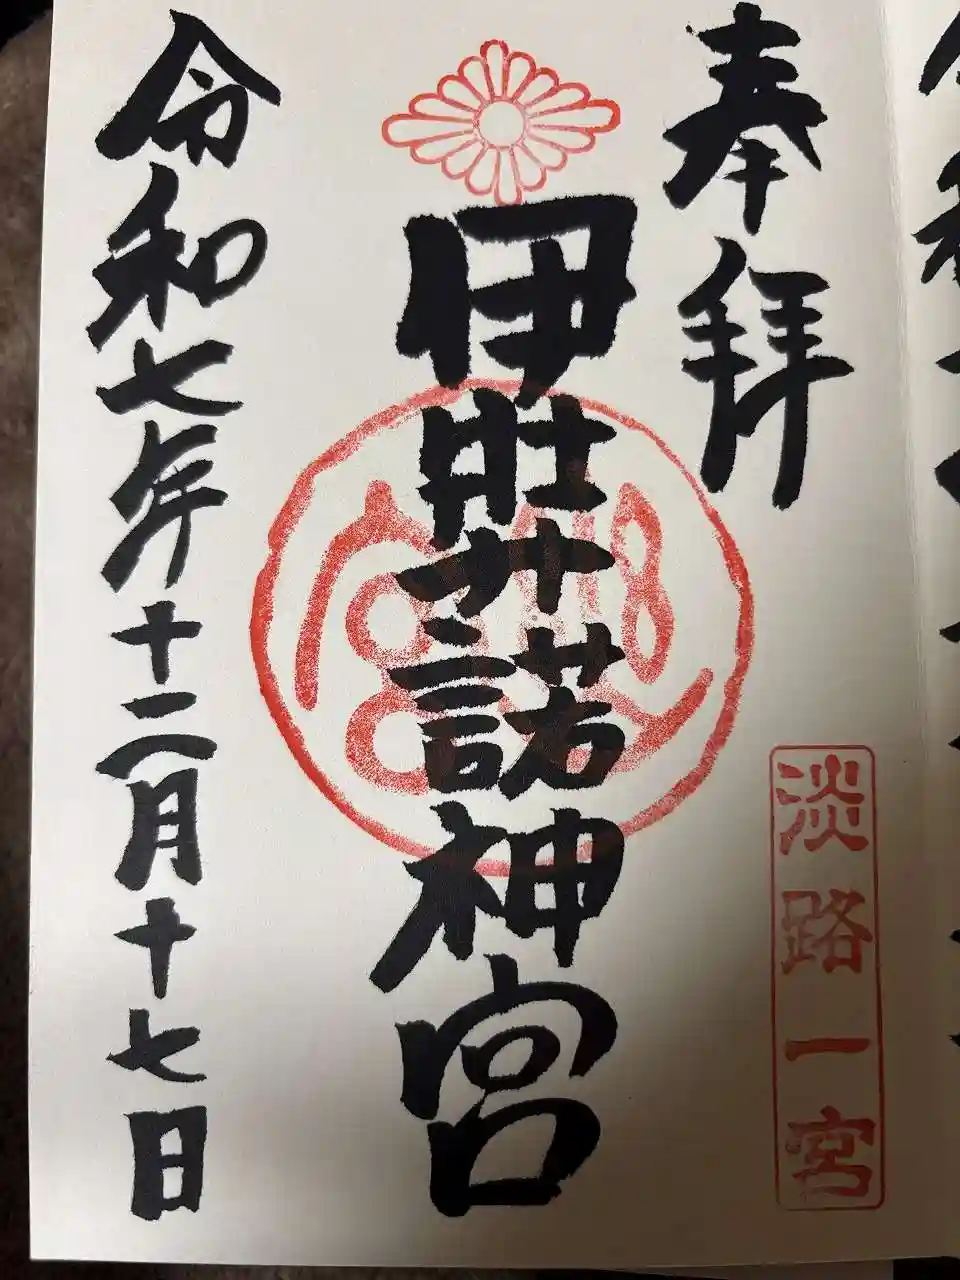 奉拝
淡路一宮
伊弉諾神宮
令和七年十二月十七日